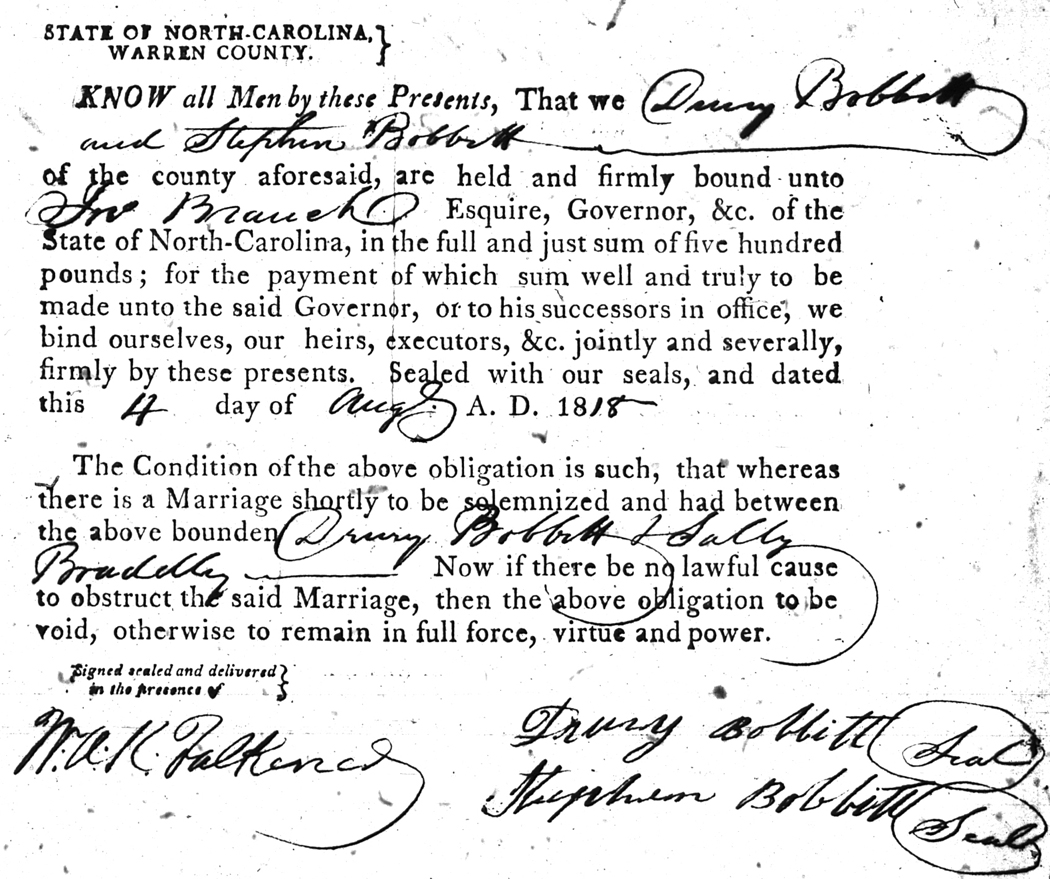 STATE OF NORTH-CAROLINA,
WARREN COUNTY.
KNOW all Men by these Presents, That we Drury Bobbitt
and Stephen Bobbitt
of the county aforesaid, are held and firmly bound unto
Jno Branch Esquire, Governor, &c. of the
State of North-Carolina, in the full and just sum of five hundred
pounds; for the payment of which sum well and truly to be
made unto the said Governor, or to his successors in office, we
bind ourselves, our heirs, executors, &c. jointly and severally,
firmly by these presents. Sealed with our seals, and dated
this 4 day of Augt. A. D. 1818
The Condition of the above obligation is such, that whereas
there is a Marriage shortly to be solemnized and had between
the above bounden Drury Bobbitt & Sally
Now if there be no lawful cause
to obstruct the said Marriage, then the above obligation to be
void, otherwise to remain in full force, virtue and power.
Signed sealed and delivered
in the presence of
Drury Bobbitt Seal
W.A.K. Falkener
Stephen Bobbitt Seal